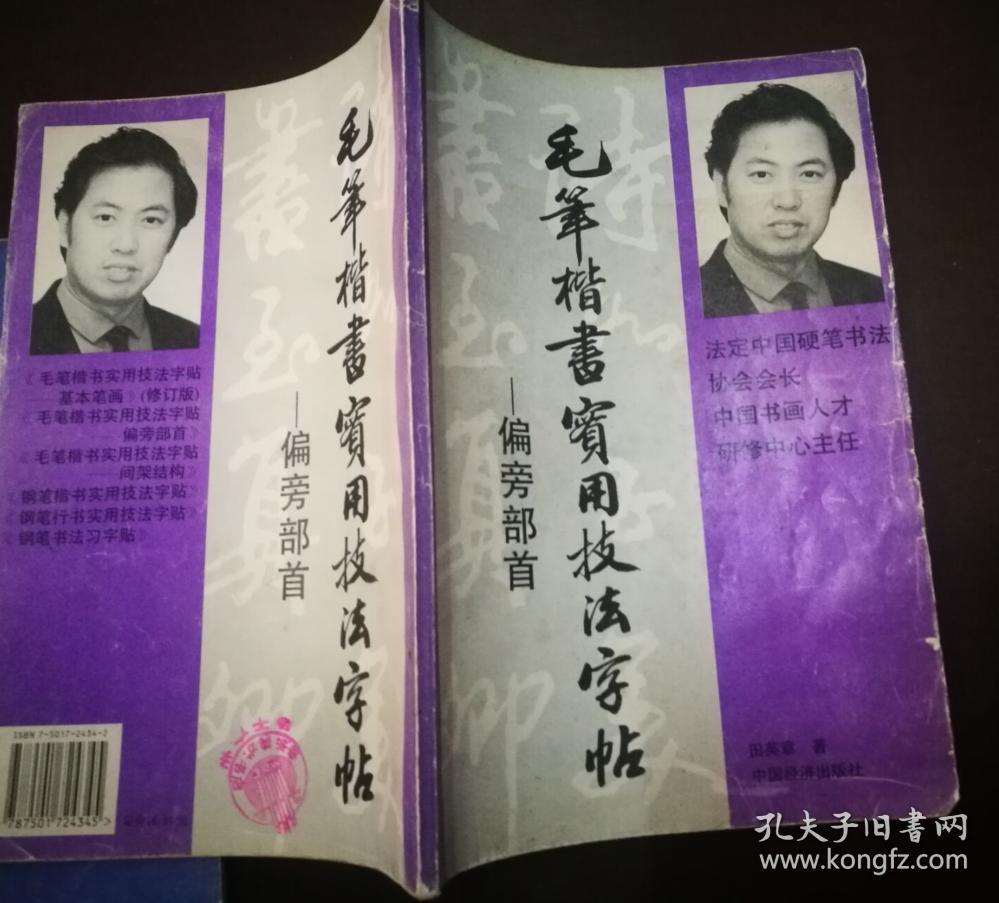 毛筆楷書實用技法字帖
—偏旁部首
法定中国硬笔书法
协会会长
中国书画人才
研修中心主任
田英章 著
中国经济出版社
毛筆楷書實用技法字帖
—偏旁部首
《毛笔楷书实用技法字贴
基本笔画》(修订版)
《毛笔楷书实用技法字贴
偏旁部首》
《毛笔楷书实用技法字贴
间架结构》
《钢笔楷书实用技法字贴》
《钢笔行书实用技法字贴》
《钢笔书法习字贴》
ISBN 7-5017-2434-2
9787501724345>
孔夫子旧書网
www.kongfz.com